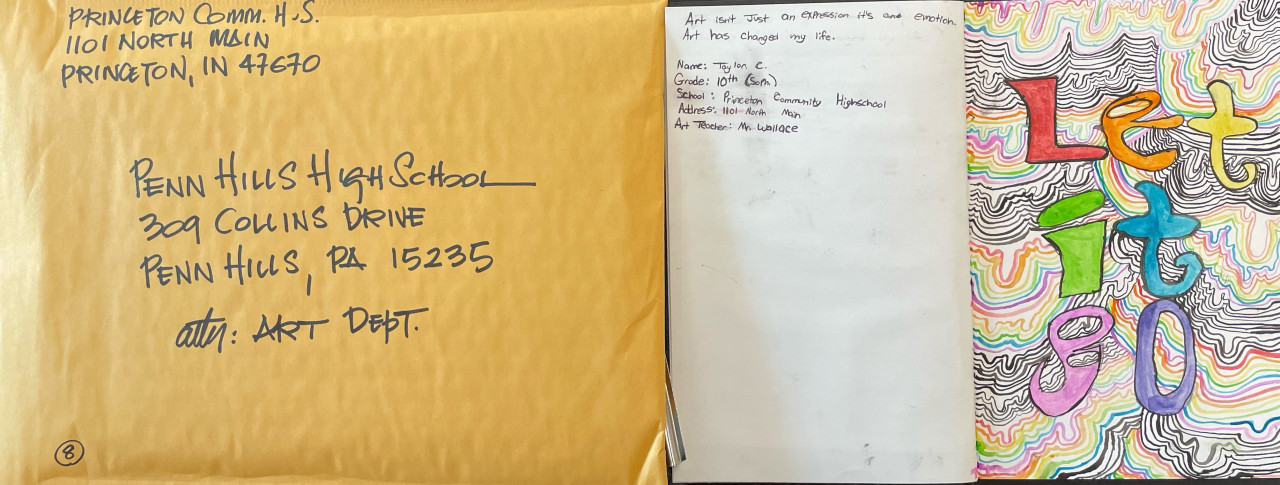 PRINCETON COMM. H.S.
1101 NORTH MAIN
PRINCETON, IN 47670
PENN HILLS HIGH SCHOOL
309 COLLINS DRIVE
PENN HILLS, PA 15235
attn: ART DEPT.
8
Art isn't Just an expression it's and emotion.
Art has changed my life.
Name: Taylon C.
Grade: 10th (Soph)
School: Princeton Community Highschool
Address: 1101 North Main
Art Teacher: Mr. Wallace
Let
it
go